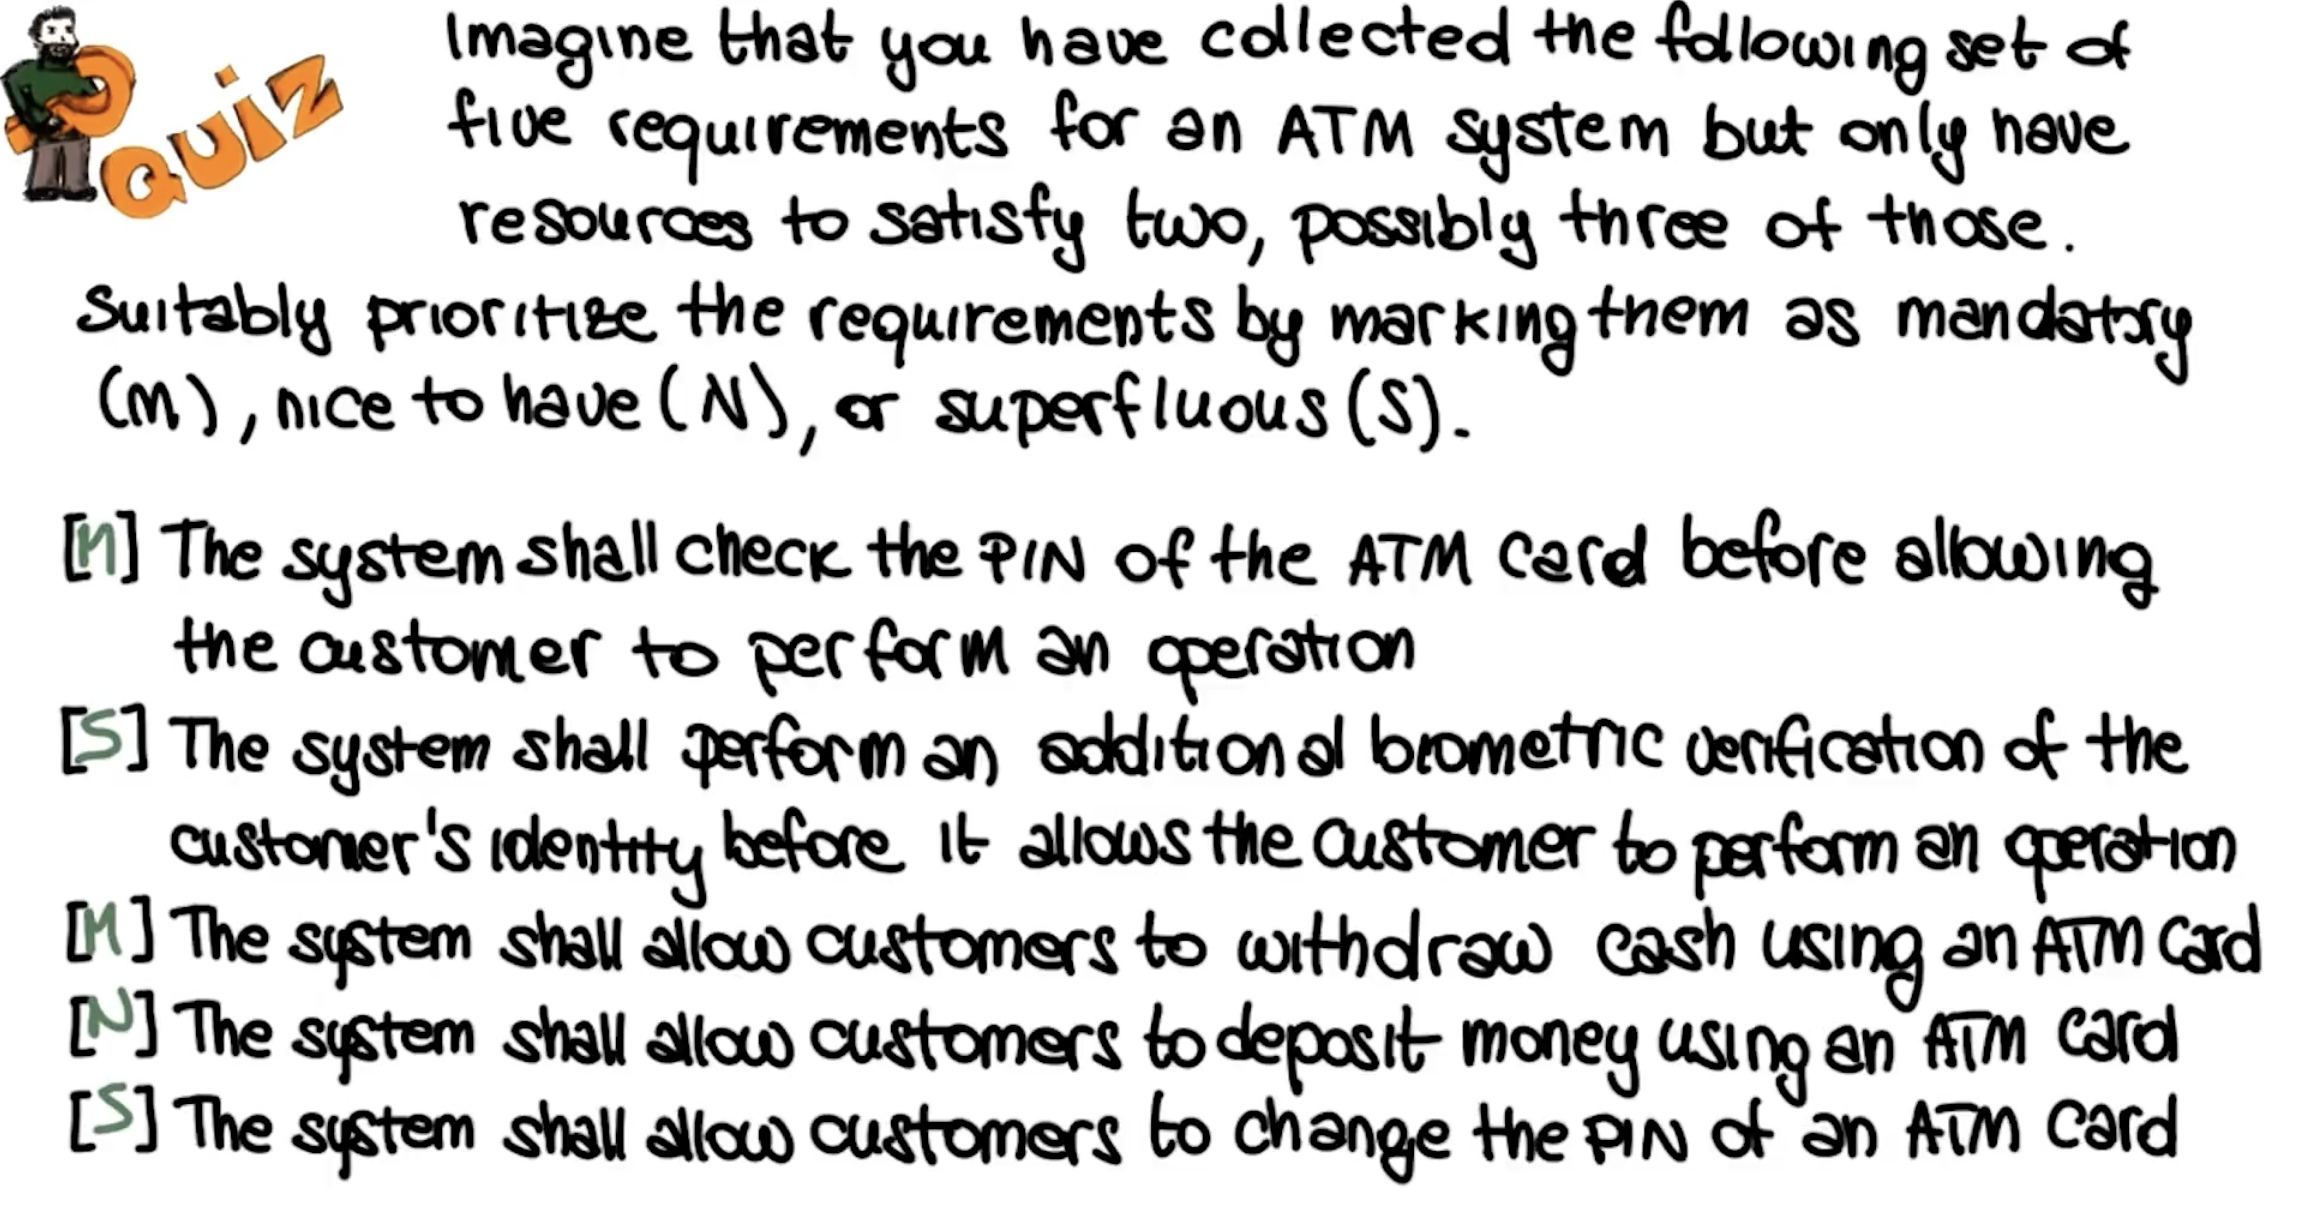 QUIZ
Imagine that you have collected the following set of
five requirements for an ATM system but only have
resources to satisfy two, possibly three of those.
Suitably prioritize the requirements by marking them as mandatory
(M), nice to have (N), or superfluous (S).
[M] The system shall check the PIN of the ATM card before allowing
the customer to perform an operation
[S] The system shall perform an additional biometric verification of the
customer's identity before it allows the customer to perform an operation
[M] The system shall allow customers to withdraw cash using an ATM card
[N] The system shall allow customers to deposit money using an ATM card
[S] The system shall allow customers to change the PIN of an ATM card